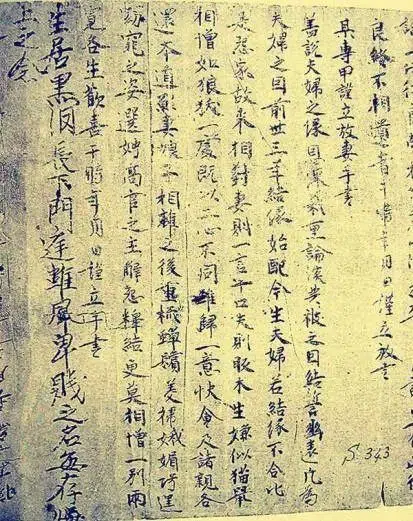 良緣不相遺者于時年月日謹立放書
某專甲謹立放妻手書
蓋說夫婦之緣恩深義重論談共被之因結誓幽遠凡為
夫婦之因前世三年結緣始配今生夫婦若結緣不合比
是怨家故來相對妻則一言十口夫則反木生嫌似猫鼠
相憎如狼犾一處既以二心不同難歸一意快會及諸親各
還本道願妻娘子相離之後重梳蟬鬢美掃娥媚巧逞
窈窕之姿選娉高官之主解怨釋結更莫相憎一別兩
寬各生歡喜于時年月日謹立手書
生居黑洞長下門庭雖犀卑賤之名無存
上之念
S.343